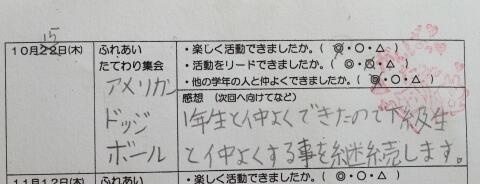 15
10月22日(木)
ふれあい
たてわり集会
アメリカン
ドッジ
ボール
・楽しく活動できましたか。(◎・○・△)
・活動をリードできましたか。(◎・○・△)
・他の学年の人と仲よくできましたか。(◎・○・△)
感想 (次回へ向けてなど)
1年生と仲よくできたので下級生
と仲よくする事を継続します。
11月12日(木)
ふれあい
・楽しく活動できましたか。(◎・○・△)